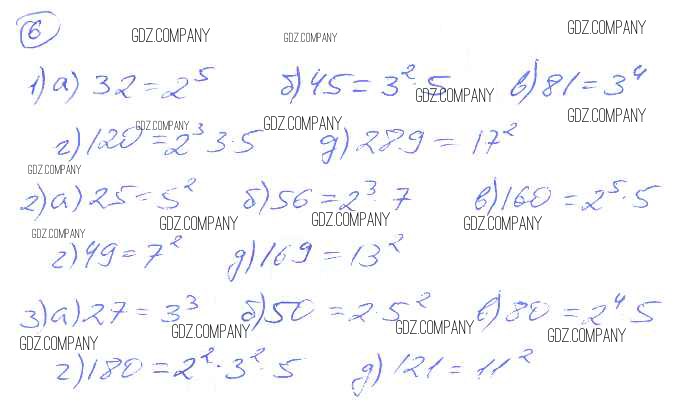 6 GDZ.COMPANY GDZ.COMPANY GDZ.COMPANY
1) а) 32 = 2⁵ б) 45 = 3²·5 в) 81 = 3⁴
GDZ.COMPANY
GDZ.COMPANY GDZ.COMPANY GDZ.COMPANY
г) 120 = 2³ 3·5 д) 289 = 17²
GDZ.COMPANY
2) а) 25 = 5² б) 56 = 2³·7 в) 160 = 2⁵·5
GDZ.COMPANY GDZ.COMPANY GDZ.COMPANY
GDZ.COMPANY
г) 49 = 7² д) 169 = 13²
3) а) 27 = 3³ б) 50 = 2·5² в) 80 = 2⁴·5
GDZ.COMPANY GDZ.COMPANY GDZ.COMPANY GDZ.COMPANY
г) 180 = 2²·3²·5 д) 121 = 11²